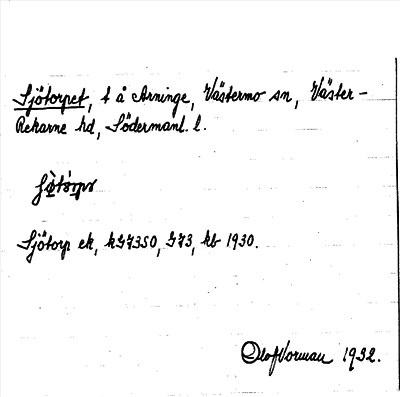 Sjötorpet, t å Arninge, Västermo sn, Väster-
Rekarne hd, Södermanl. l.
Sjötorp ek, k G7350, J73, kb 1930.
Olof Vorman 1932.